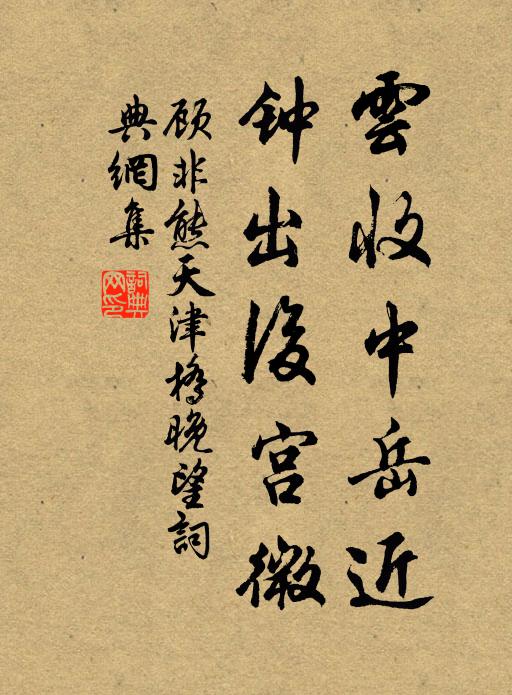 雲收中岳近
钟出後宫微
顾非熊天津橋晚望詞
典網集
詞典网印